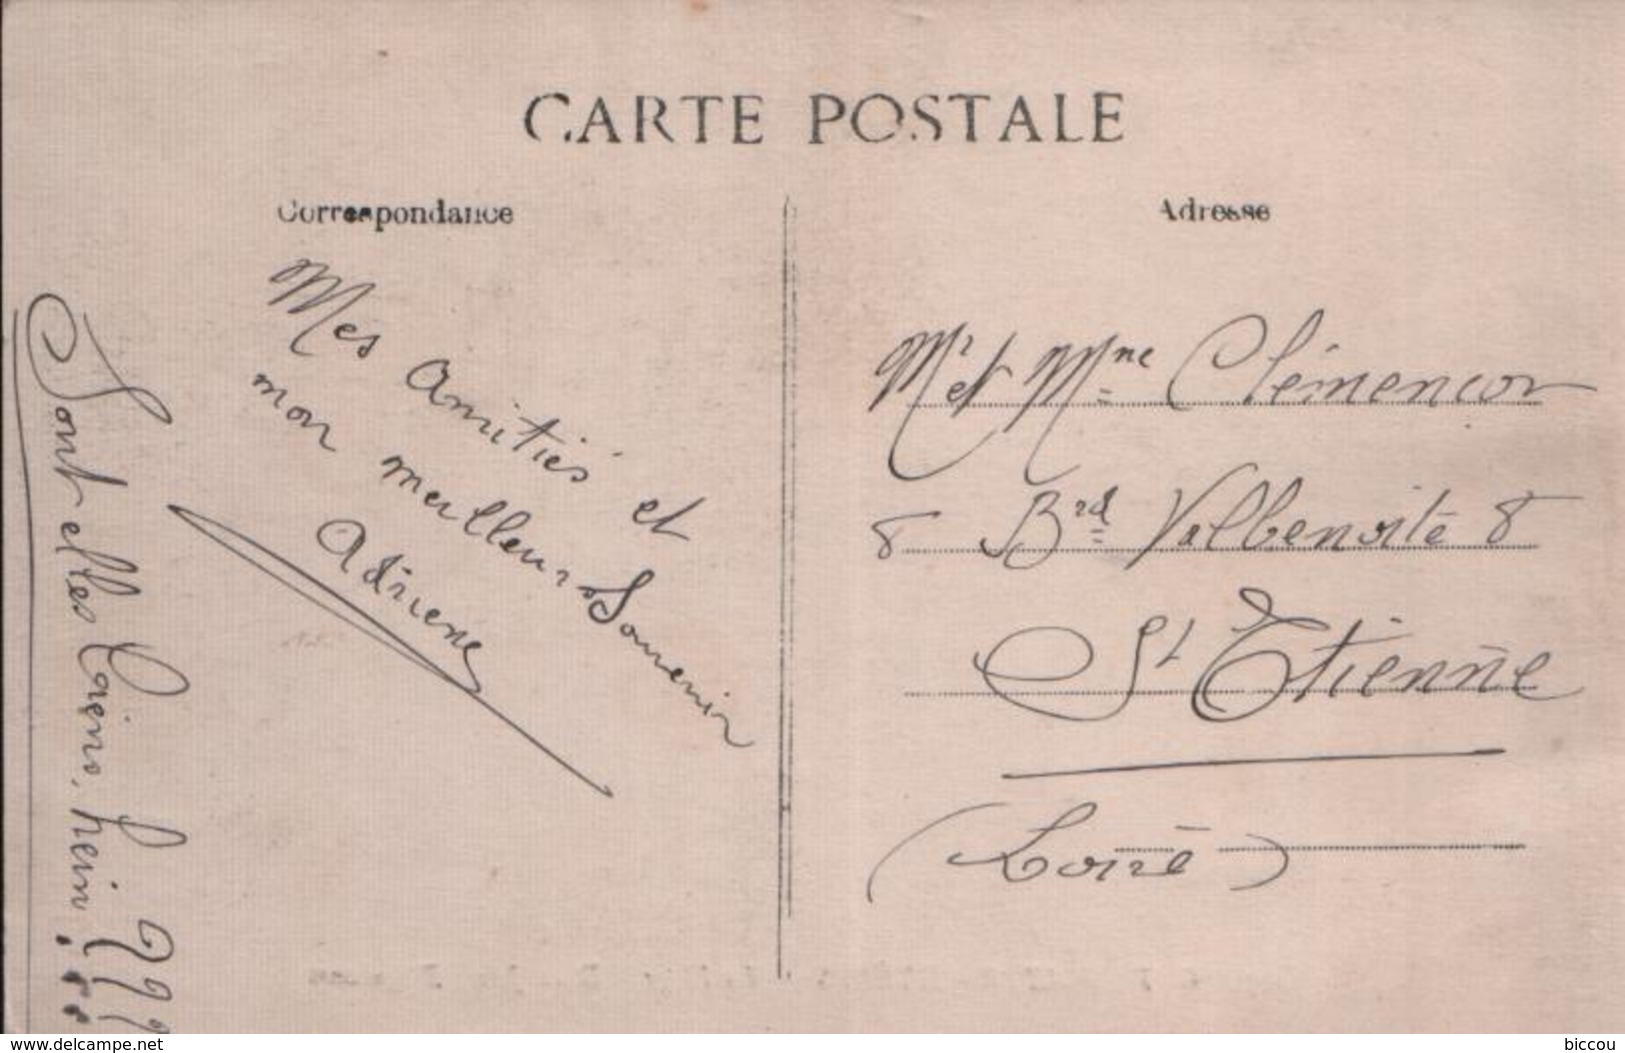 CARTE POSTALE
Correspondance
Adresse
Mes Amitiés et
mon meilleurs Souvenir
Adriene
Sont elles bains, hein ! ???
Mr et Mme Clémençon
8 Brd Valbenoite 8
St Etienne
(Loire)
www.delcampe.net
biccou